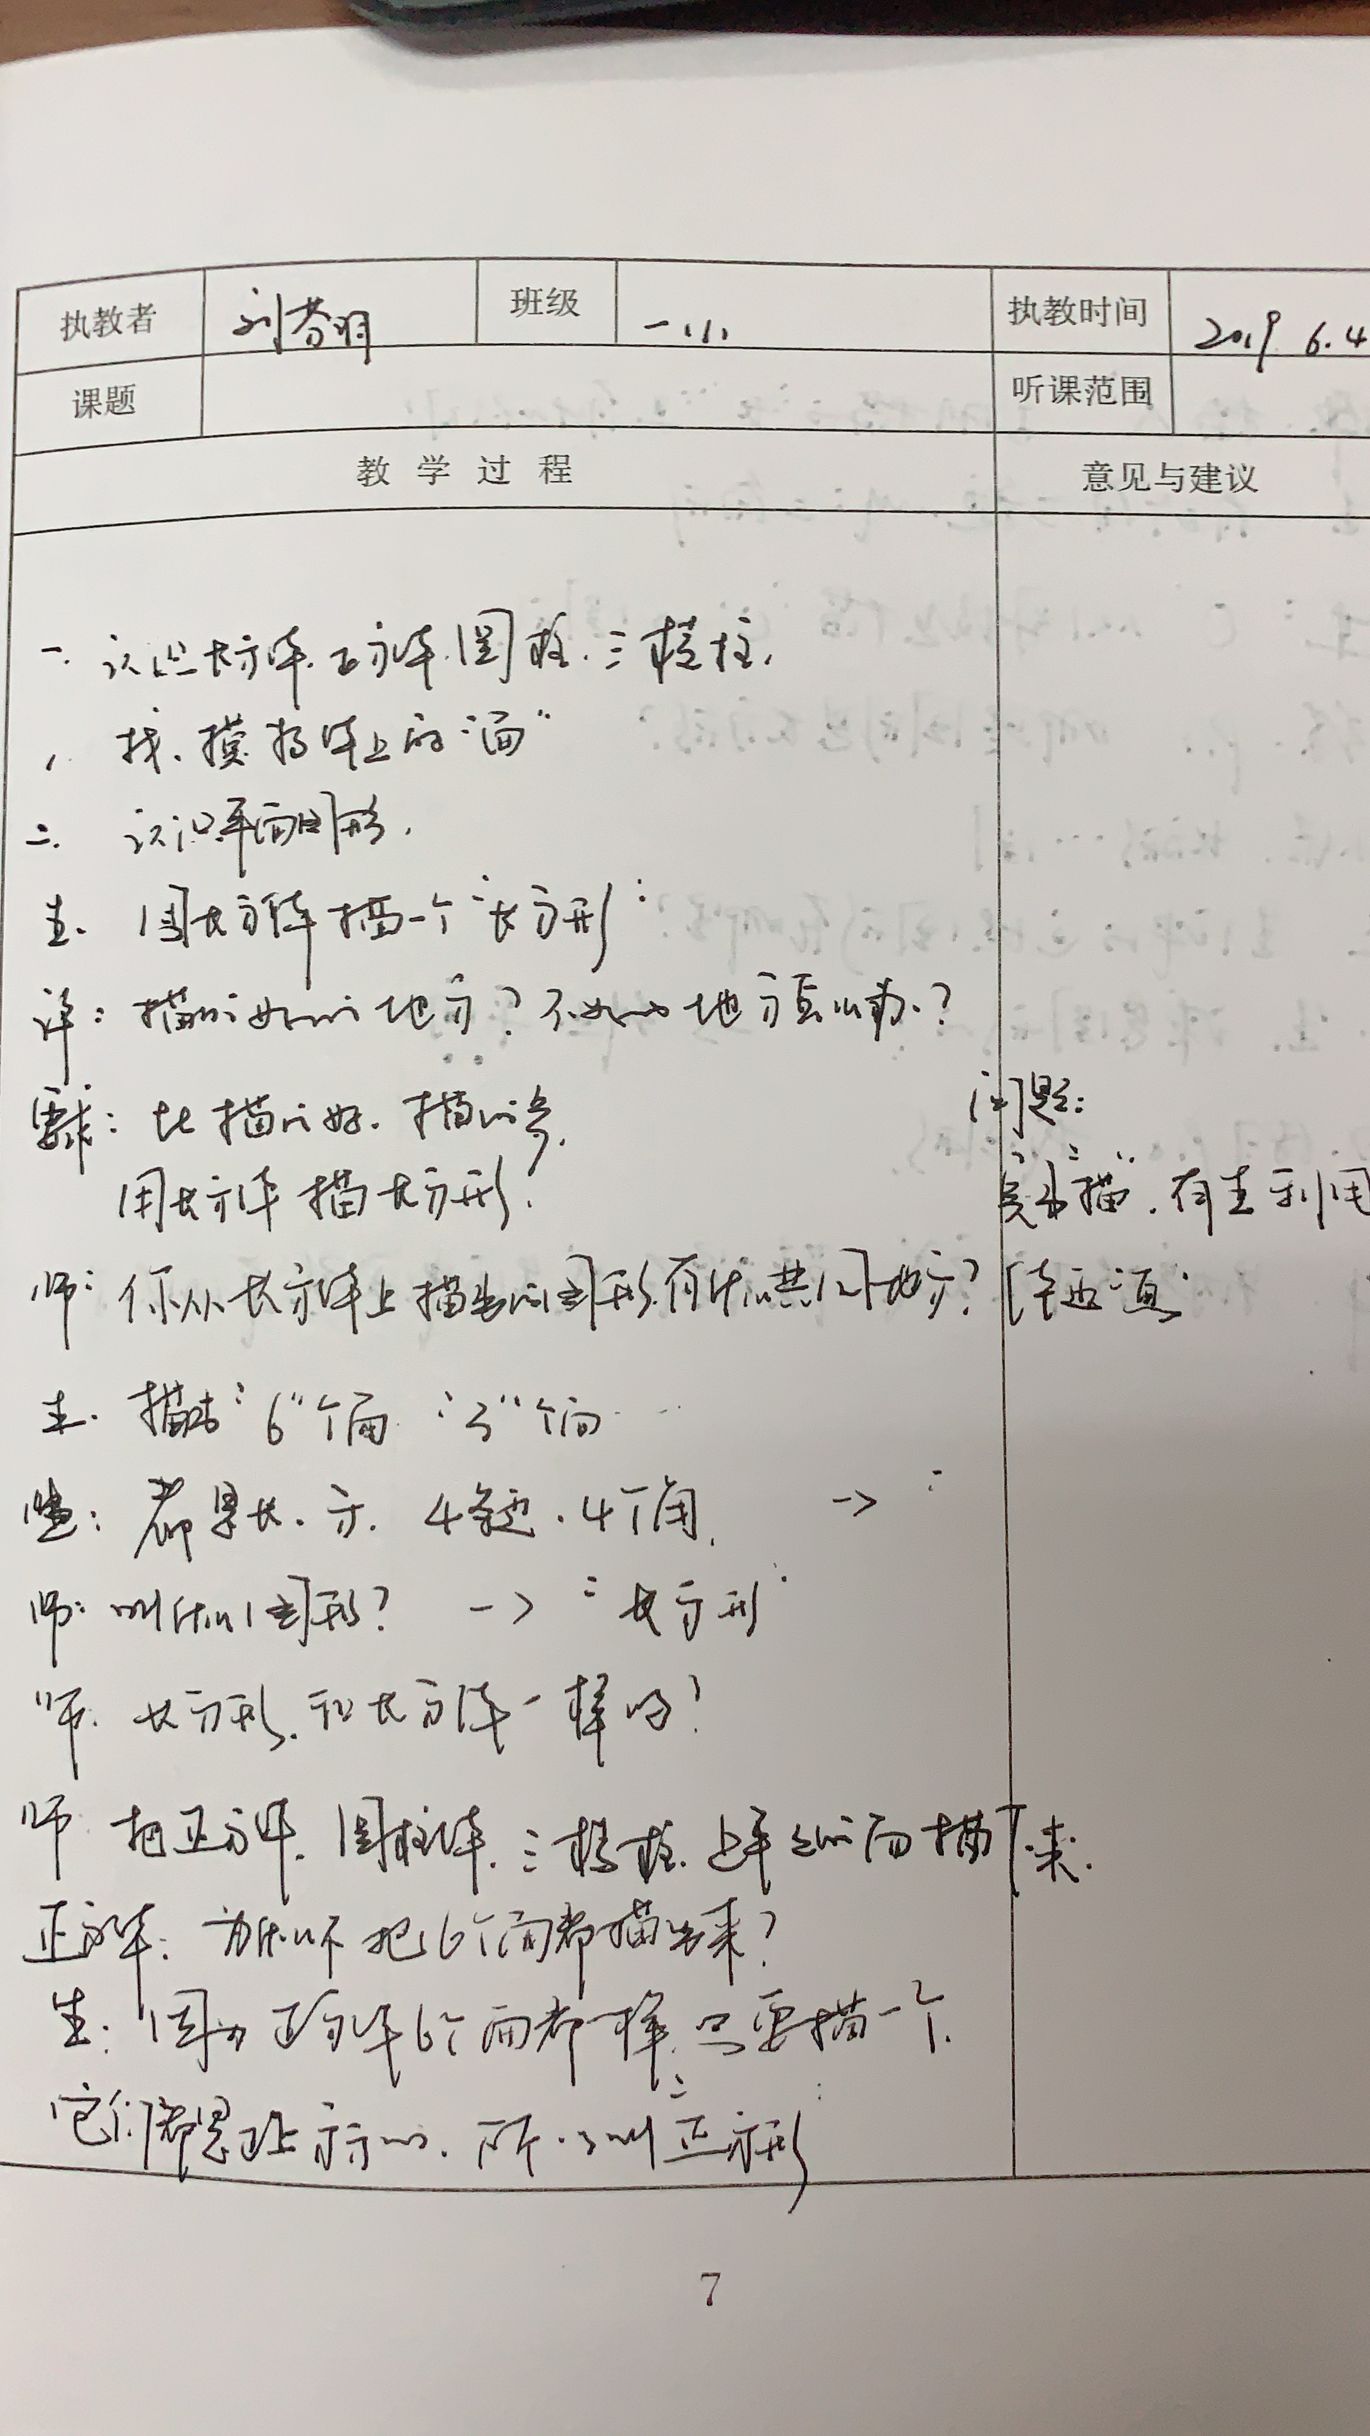 执教者 刘 班级 一(1) 执教时间 2019 6.4
课题 听课范围
教学过程 意见与建议
一. 认识长方体.正方体.圆柱.三棱柱.
, 找、摸物体上的“面”
二. 认识平面图形.
生. 用长方体描一个“长方形”
评: 描的好的地方?不好的地方怎么办?
要求: 比描的好.描的多.
用长方体描长方形.
问题:
“描”.有生利用
师: 你从长方体上描出的图形有什么共同地方?
生. 描出“6”个面 “3”个面……
生: 都是长.方. 4条边.4个角. ->
师: 叫什么图形? -> “长方形”
师. 长方形.和长方体一样吗?
师 把正方体.圆柱体.三棱柱.上平的面描下来.
正方体: 为什么不把6个面都描出来?
生: 因为正方体6个面都一样.只要描一个.
它们都是正正方方的.所以叫“正方形”
7